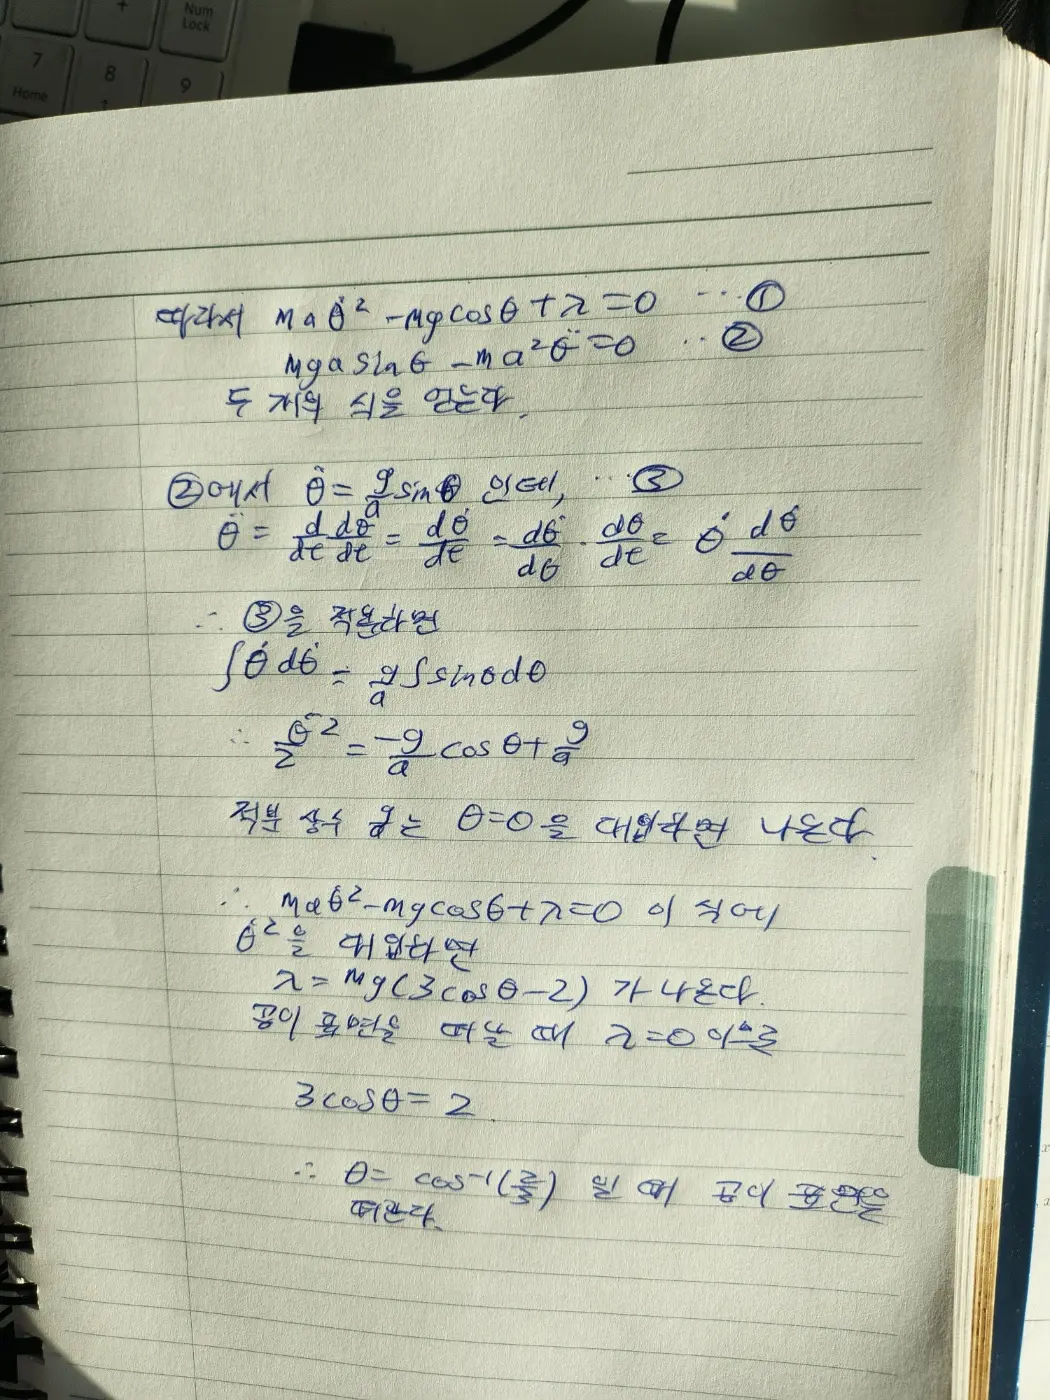 +
Num
Lock
7
Home
8
9
따라서 maθ̇² - mgcosθ + λ = 0 ··· ①
mga sinθ - ma²θ̈ = 0 ·· ②
두 개의 식을 얻는다.
②에서 θ̈ = g/a sinθ 인데, ··· ③
θ̈ = d/dt dθ/dt = dθ̇/dt = dθ̇/dθ · dθ/dt = θ̇ dθ̇/dθ
∴ ③을 적용하면
∫θ̇ dθ̇ = g/a ∫sinθdθ
∴ θ̇²/2 = -g/a cosθ + g/a
적분 상수 g/a는 θ=0을 대입하면 나온다.
∴ maθ̇² - mgcosθ + λ = 0 이 식에
θ̇²을 대입하면
λ = mg(3cosθ - 2) 가 나온다.
공이 표면을 떠날 때 λ=0 이므로
3cosθ = 2
∴ θ = cos⁻¹(2/3) 일 때 공이 표면을
떠난다.